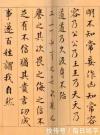 明不知常妄作凶知常
容容乃公公乃王王乃天天乃
道道乃久沒身不殆
太上下知有之其次親之
譽之其次畏之侮之信不
足有不信猶其貴言成功
事遂百姓謂我自然
快传号